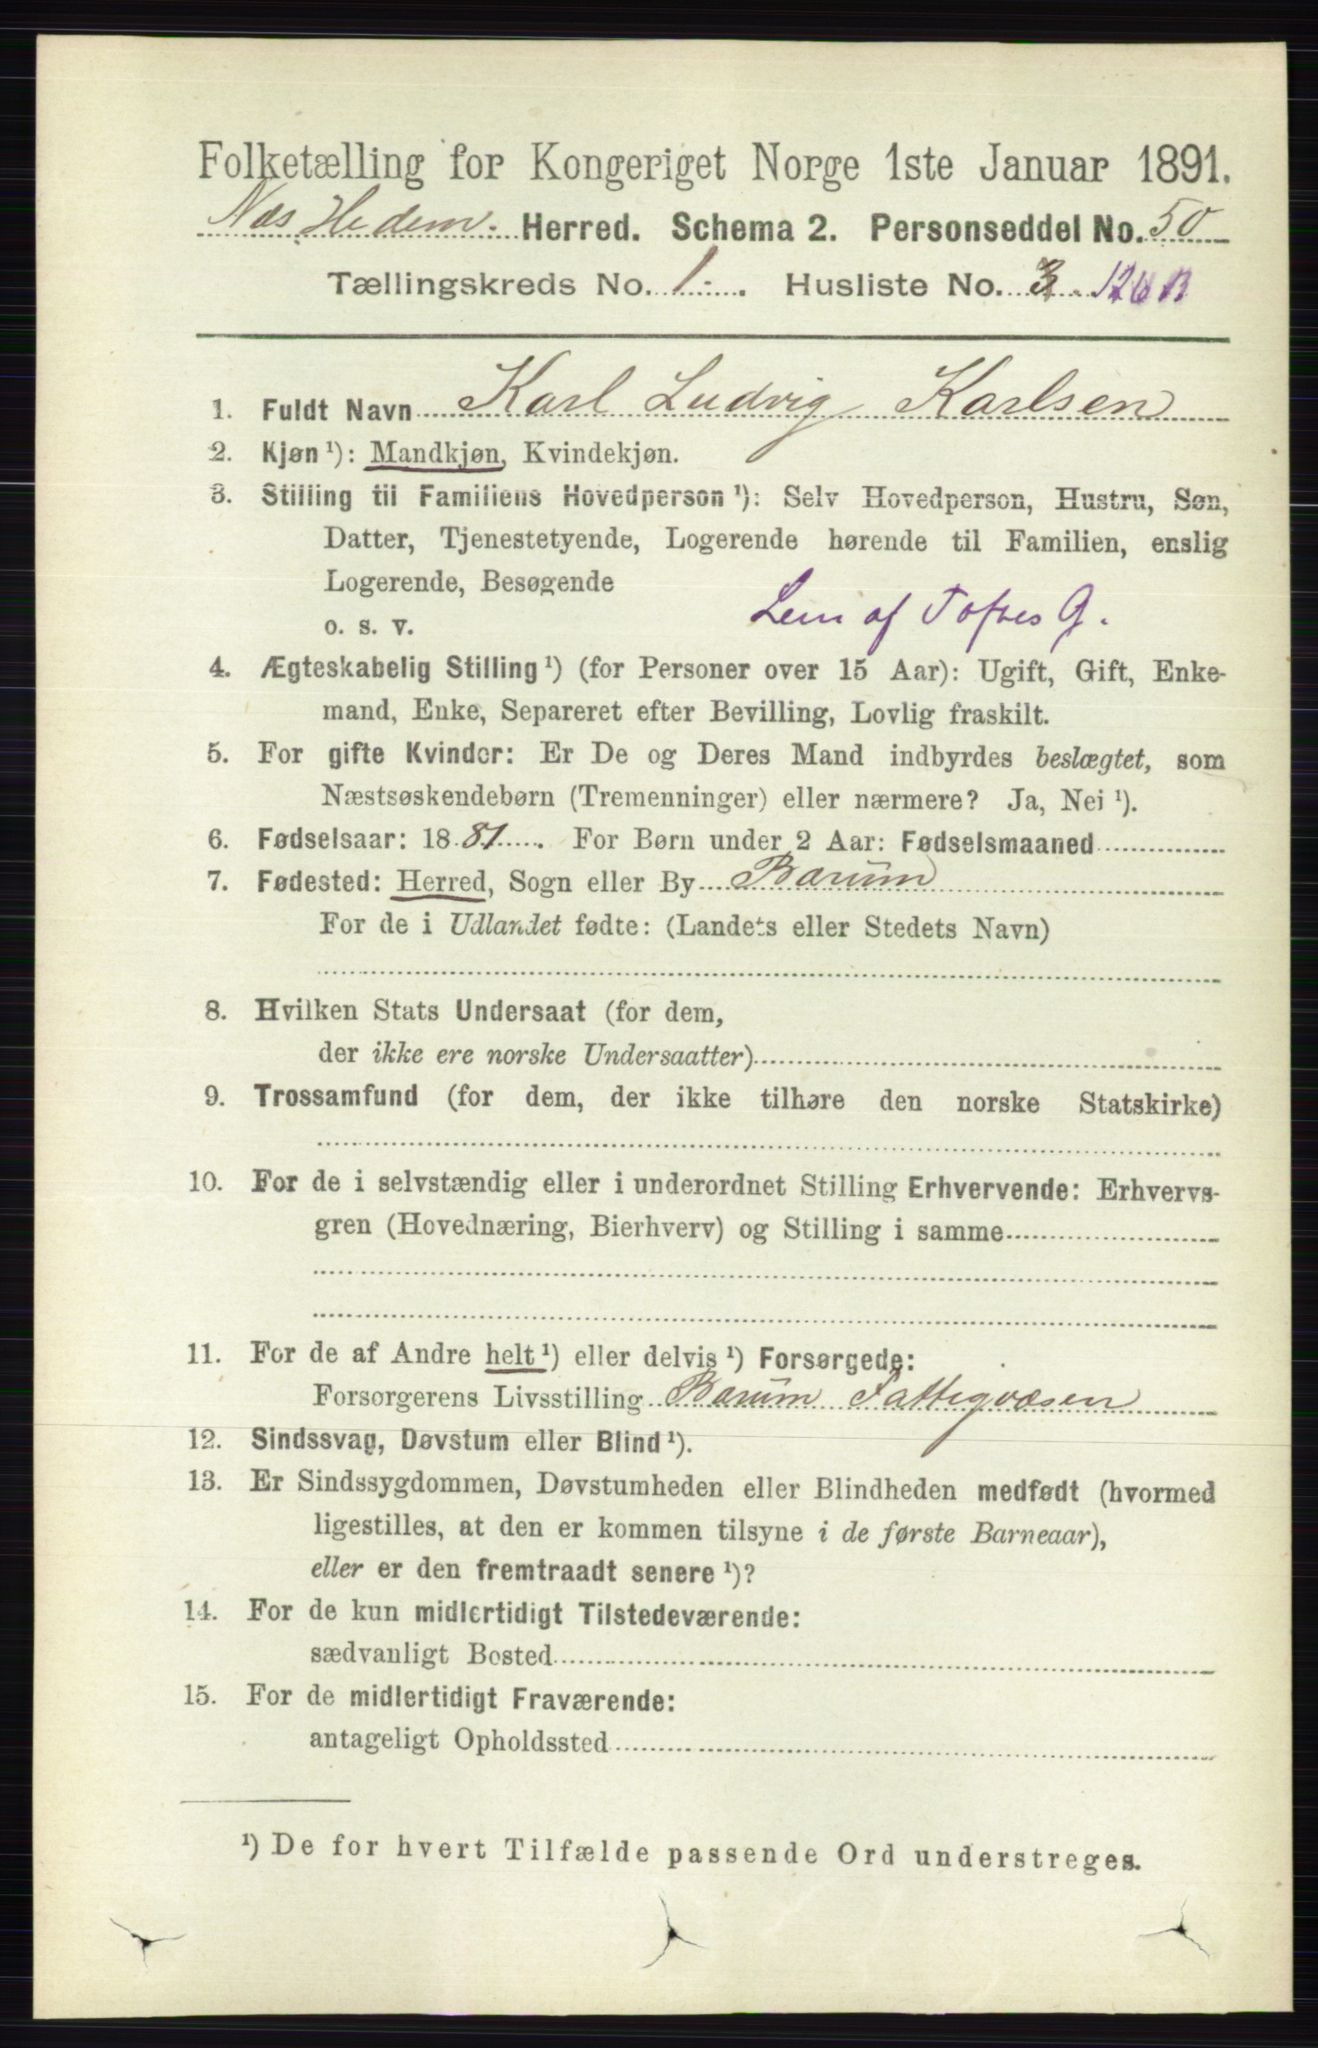 Folketælling for Kongeriget Norge 1ste Januar 1891.
Næs Hedem. Herred. Schema 2. Personseddel No. 50
Tællingskreds No. 1. Husliste No. 3.
1. Fuldt Navn Karl Ludvig Karlsen
2. Kjøn ¹): Mandkjøn, Kvindekjøn.
3. Stilling til Familiens Hovedperson ¹): Selv Hovedperson, Hustru, Søn,
Datter, Tjenestetyende, Logerende hørende til Familien, enslig
Logerende, Besøgende
o. s. v. Lem af Toftes G.
4. Ægteskabelig Stilling ¹) (for Personer over 15 Aar): Ugift, Gift, Enke-
mand, Enke, Separeret efter Bevilling, Lovlig fraskilt.
5. For gifte Kvinder: Er De og Deres Mand indbyrdes beslægtet, som
Næstsøskendebørn (Tremenninger) eller nærmere? Ja, Nei ¹).
6. Fødselsaar: 1881. For Børn under 2 Aar: Fødselsmaaned
7. Fødested: Herred, Sogn eller By Bærum
For de i Udlandet fødte: (Landets eller Stedets Navn)
8. Hvilken Stats Undersaat (for dem,
der ikke ere norske Undersaatter)
9. Trossamfund (for dem, der ikke tilhøre den norske Statskirke)
10. For de i selvstændig eller i underordnet Stilling Erhvervende: Erhvervs-
gren (Hovednæring, Bierhverv) og Stilling i samme
11. For de af Andre helt ¹) eller delvis ¹) Forsørgede:
Forsørgerens Livsstilling Bærum Fattigvæsen
12. Sindssvag, Døvstum eller Blind ¹).
13. Er Sindssygdommen, Døvstumheden eller Blindheden medfødt (hvormed
ligestilles, at den er kommen tilsyne i de første Barneaar),
eller er den fremtraadt senere ¹)?
14. For de kun midlertidigt Tilstedeværende:
sædvanligt Bosted
15. For de midlertidigt Fraværende:
antageligt Opholdssted
¹) De for hvert Tilfælde passende Ord understreges.